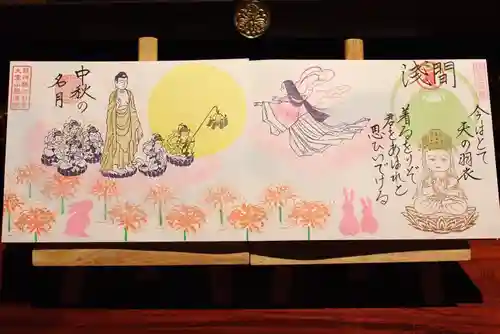 淺間
今はとて
天の羽衣
着るをりぞ
君をあはれと
思ひいでける
中秋の
名月